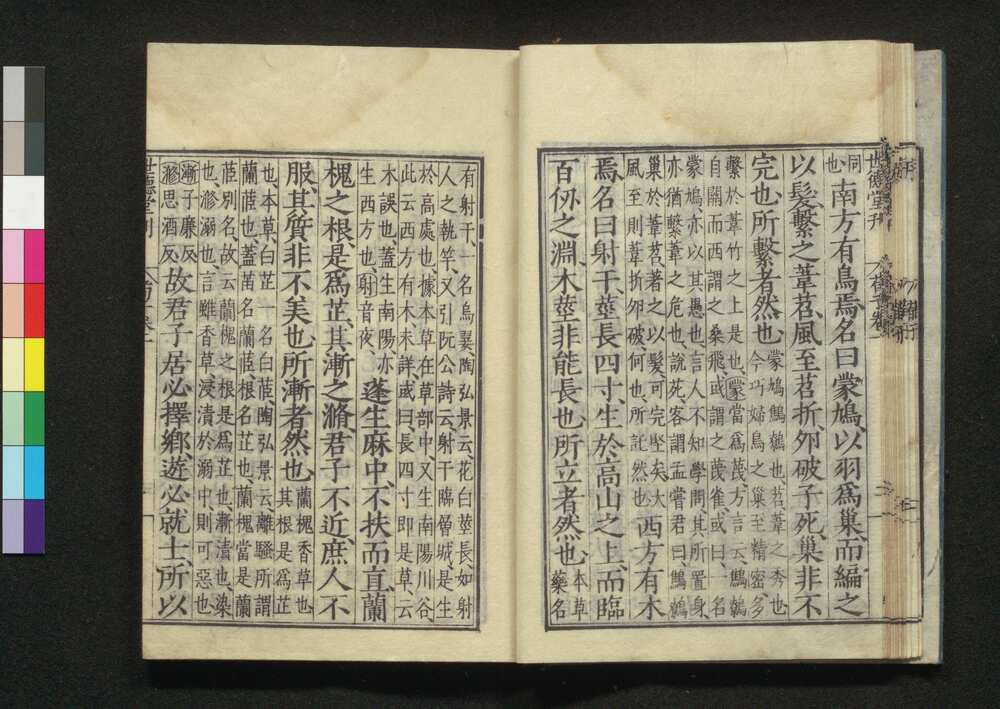 世德堂刊
荀子卷一
同
也
南方有鳥焉、名曰蒙鳩、以羽爲巢、而編之
以髮、繫之葦苕、風至苕折、卵破子死、巢非不
完也、所繫者然也、
蒙鳩鷦鷯也、苕葦之秀也
今巧婦鳥之巢至精密多
繫於葦竹之上是也、蒙當爲蔑、方言云、鷦鷯
自關而西謂之桑飛、或謂之蔑雀、或曰、一名
蒙鳩、亦以其愚也、言人不知學問、其所置身、
亦猶繫葦之危也、說苑客謂孟嘗君曰、鷦鷯
巢於葦苕、著之以髮、可完堅矣、大
風至則葦折卵破何也、所託然也、
西方有木
焉、名曰射干、莖長四寸、生於高山之上、而臨
百仞之淵、木莖非能長也、所立者然也、
本草
藥名
有射干、一名烏翣、陶弘景云、花白莖長、如射
人之執竿、又引阮公詩云、射干臨層城、是生
於高處也、據本草在草部中、又生南陽川谷、
此云西方有木、未詳、或曰、長四寸、即是草、云
木誤也、蓋生南陽亦
生西方也、射音夜、
蓬生麻中、不扶而直、蘭
槐之根、是爲芷、其漸之滫、君子不近、庶人不
服、其質非不美也、所漸者然也、
蘭槐香草也、
其根是爲芷
也、本草、白芷一名白茝、陶弘景云、離騷所謂
蘭茝也、蓋苗名蘭茝、根名芷也、蘭槐當是蘭
茝別名、故云蘭槐之根是爲芷也、漸漬也、染
也、滫溺也、言雖香草浸漬於溺中、則可惡也、
漸子廉反、
滫思酒反
故君子居必擇鄉、遊必就士、所以
世德堂刊